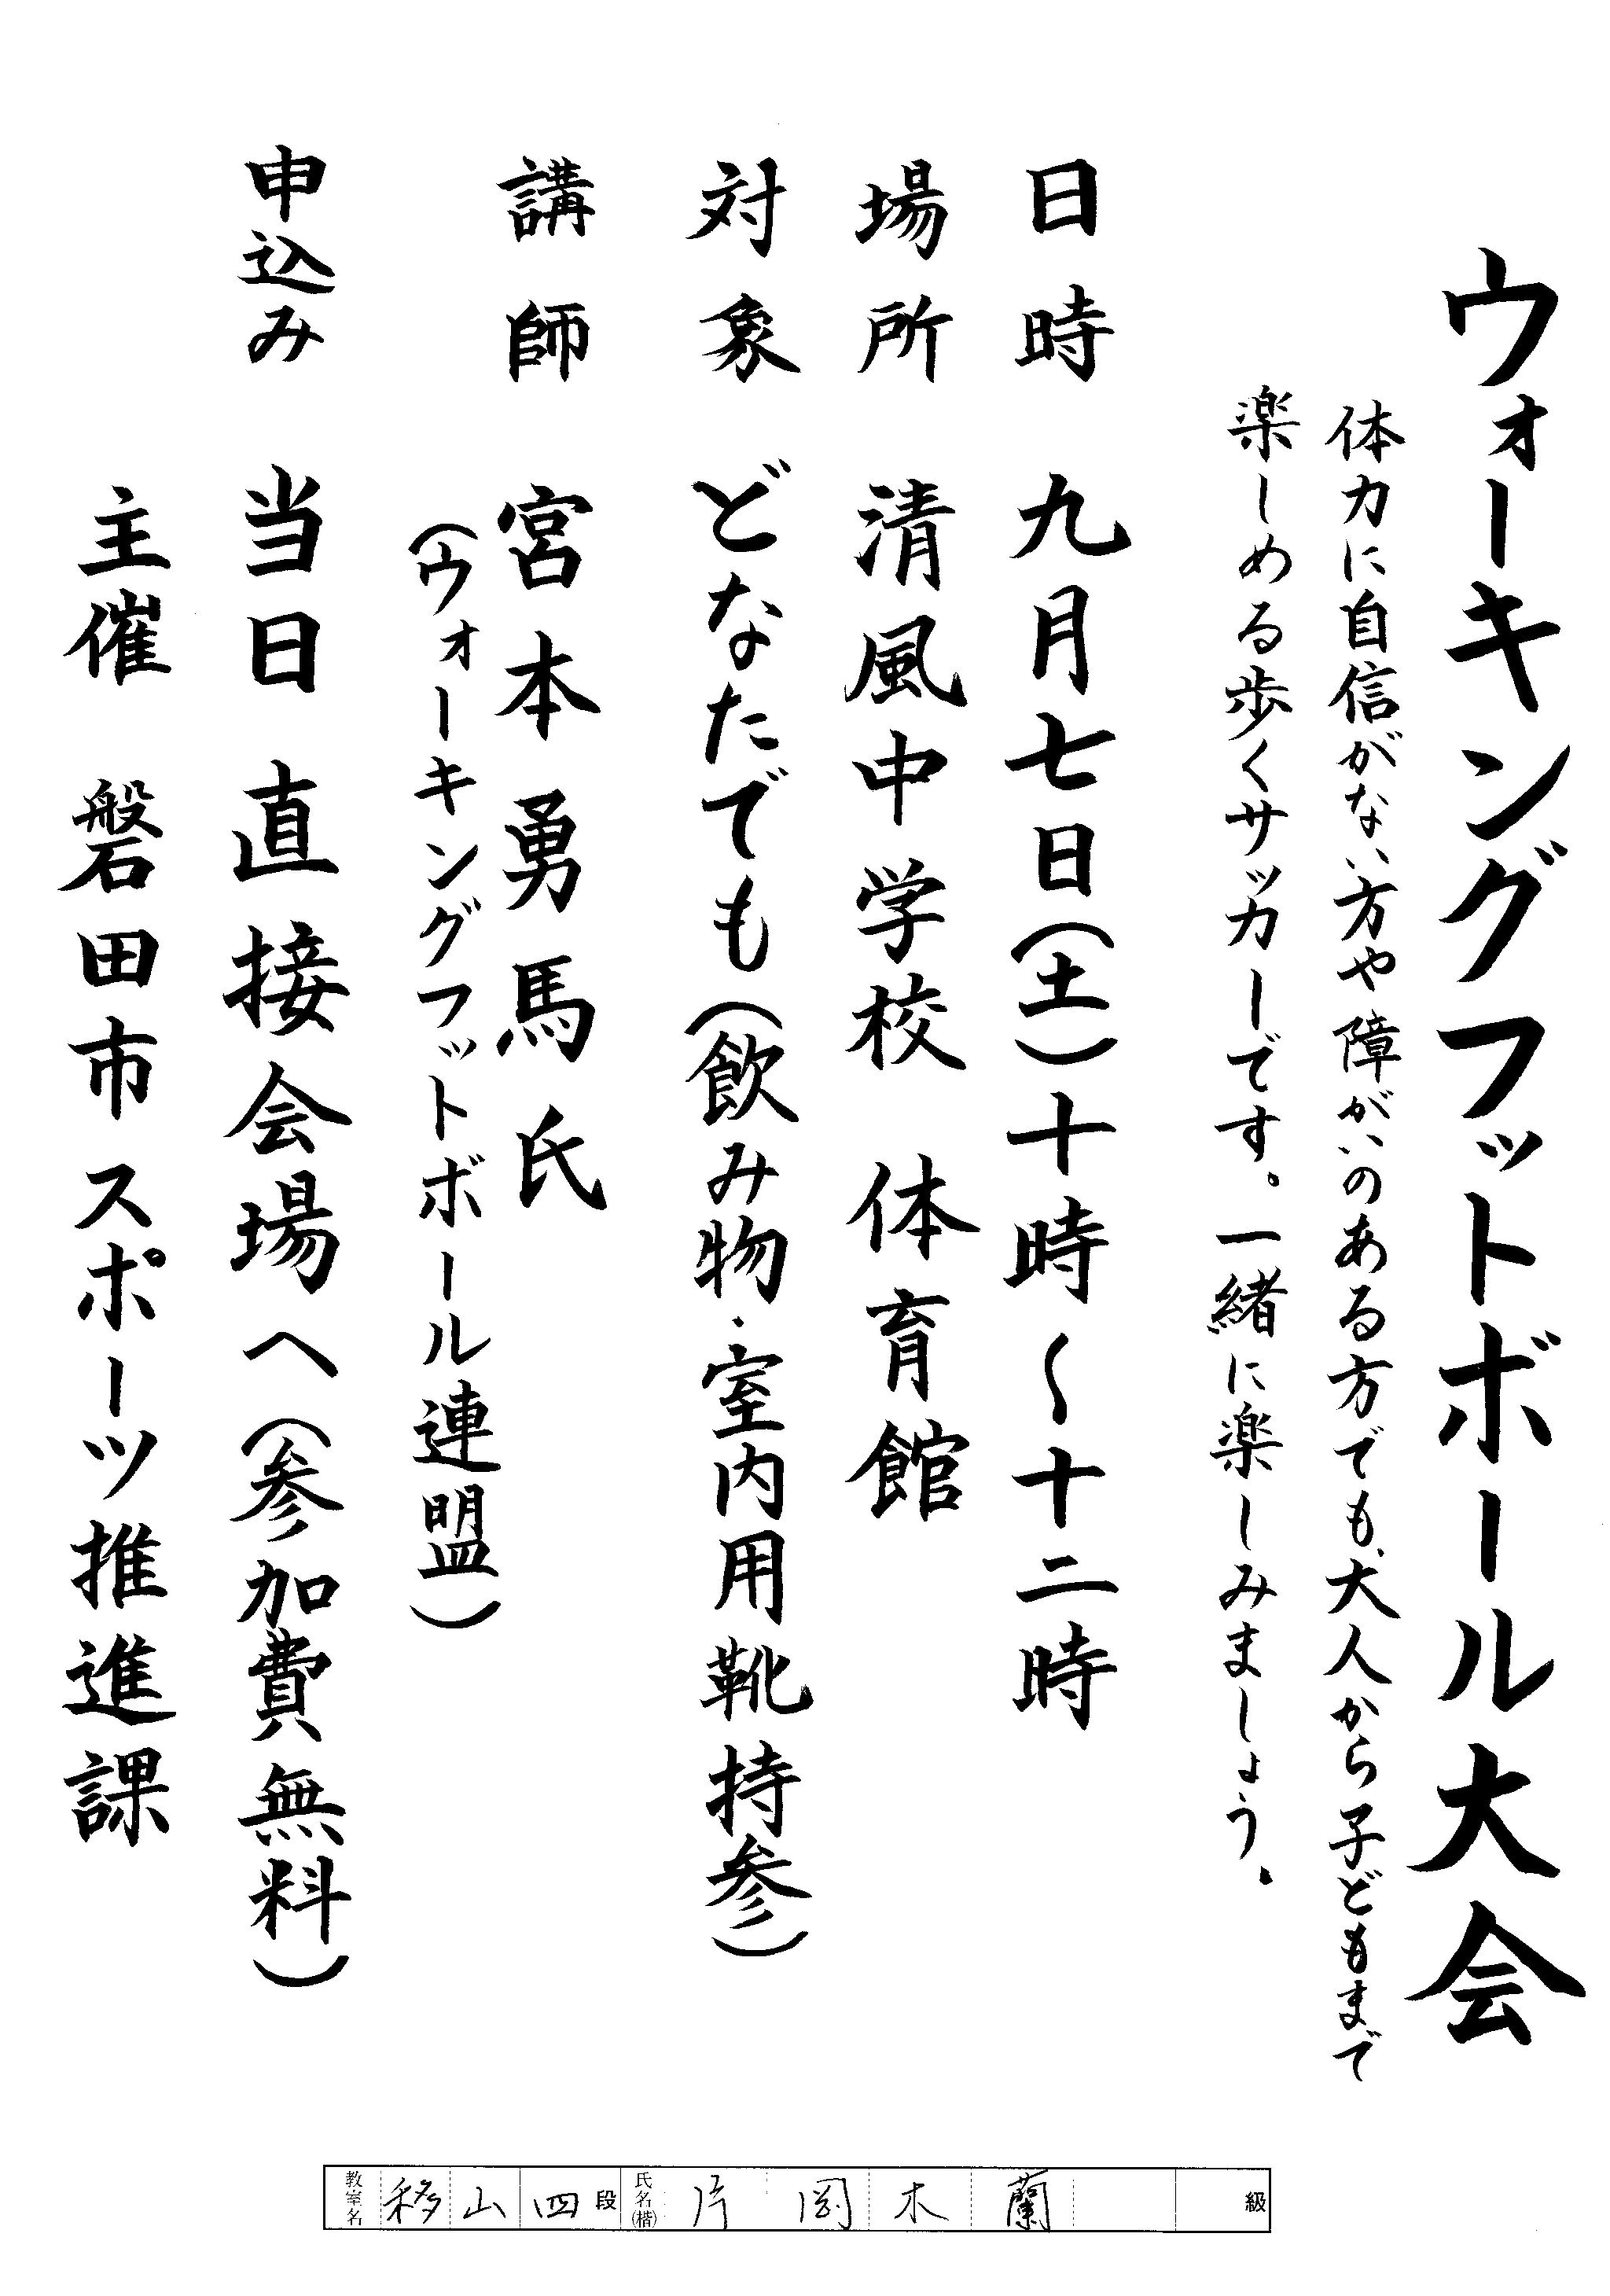 ウォーキングフットボール大会
体力に自信がない方や障がいのある方でも、大人から子どもまで
楽しめる歩くサッカーです。一緒に楽しみましょう。
日時 九月七日(土)十時〜十二時
場所 清風中学校 体育館
対象 どなたでも(飲み物・室内用靴持参)
講師 宮本勇馬氏
(ウォーキングフットボール連盟)
申込み 当日直接会場へ(参加費無料)
主催 磐田市スポーツ推進課
教室名 移山 四段 氏名(楷) 片岡木蘭 級